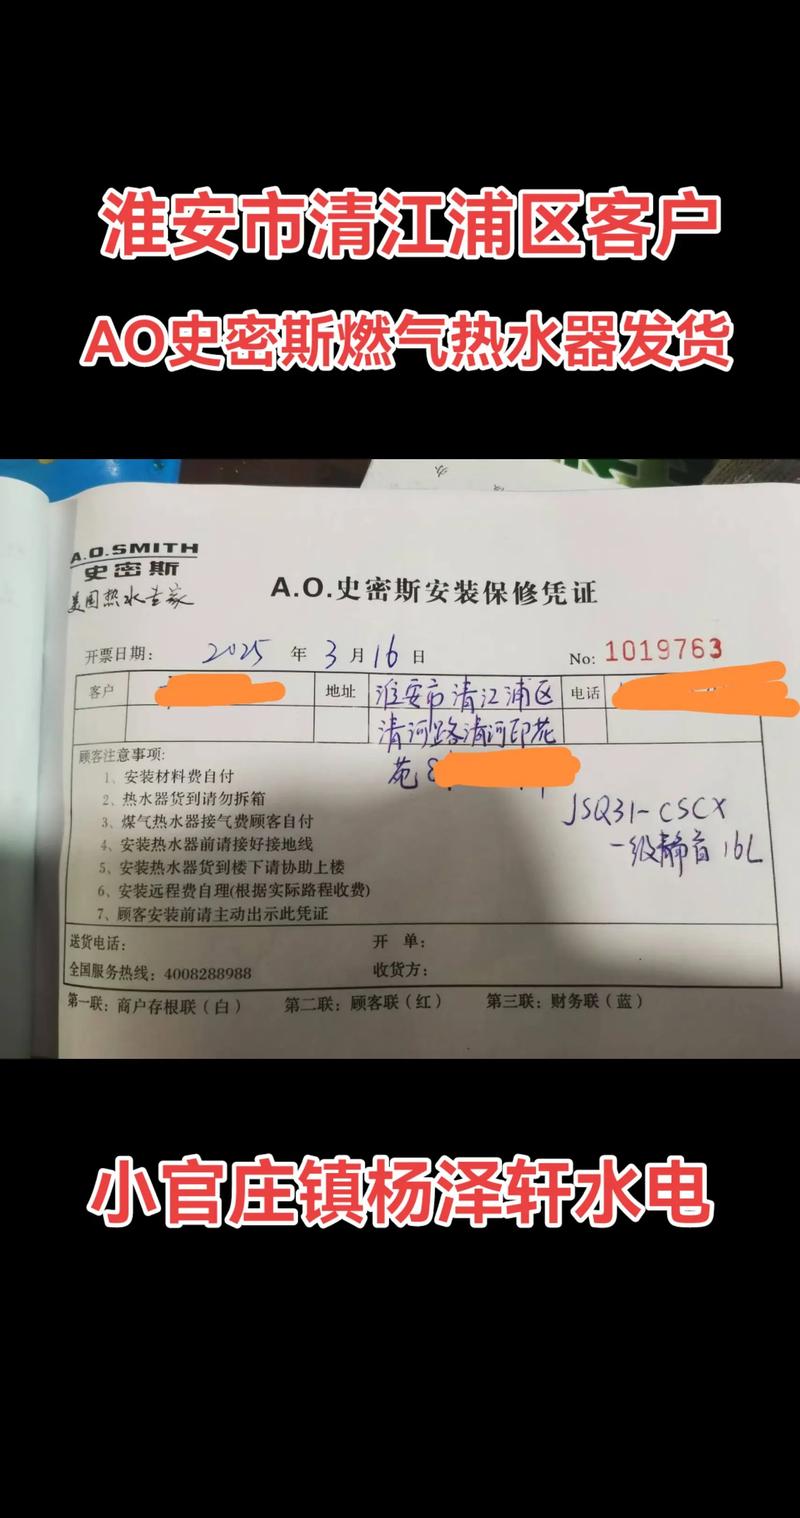 淮安市清江浦区客户
AO史密斯燃气热水器发货
A.O.SMITH
史密斯
美国热水专家
A.O.史密斯安装保修凭证
开票日期: 2025 年 3 月 16 日
No: 1019763
客户 地址 淮安市清江浦区 电话
清河路清河印花
苑
顾客注意事项:
1、安装材料费自付
2、热水器货到请勿拆箱
3、煤气热水器接气费顾客自付
4、安装热水器前请接好接地线
5、安装热水器货到楼下请协助上楼
6、安装远程费自理(根据实际路程收费)
7、顾客安装前请主动出示此凭证
JSQ31-CSCX
一级静音 16L
送货电话: 开 单:
全国服务热线: 4008288988 收货方:
第一联: 商户存根联(白) 第二联: 顾客联(红) 第三联: 财务联(蓝)
小官庄镇杨泽轩水电